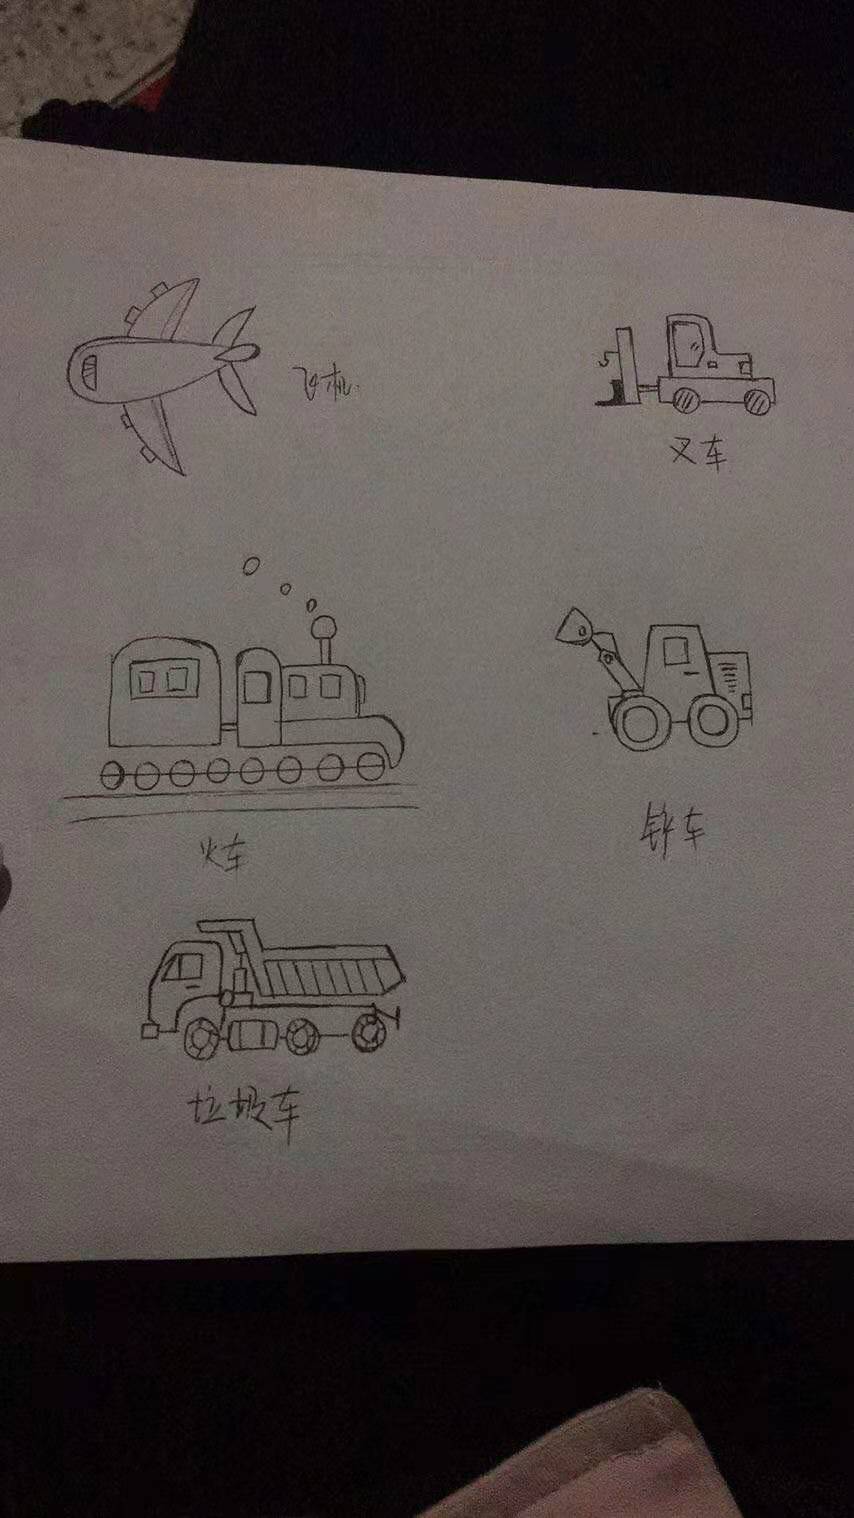 飞机.
叉车
火车
铲车
垃圾车